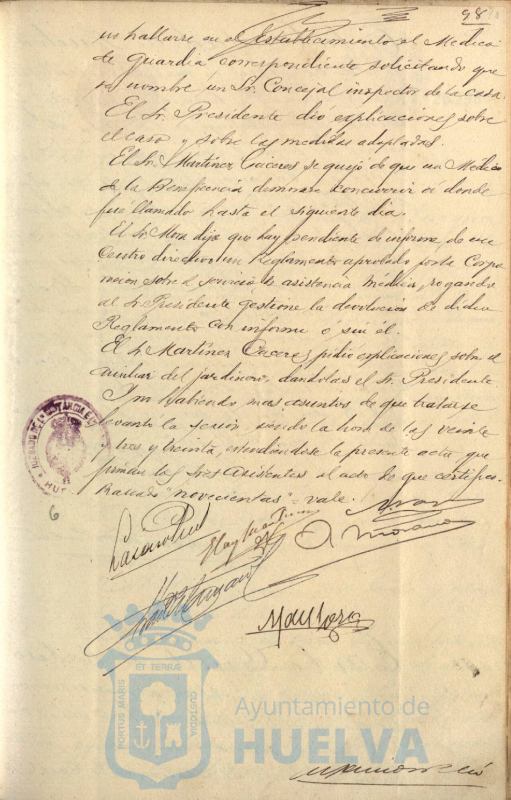 98
no hallarse en el establecimiento el Medico
de guardia correspondiente solicitando que
se nombre un Sr. Concejal inspector de la casa.
El Sr. Presidente dió explicaciones sobre
el caso y sobre las medidas adoptadas.
El Sr. Martínez Caceres se quejó de que un Medico
de la Beneficencia demorase concurrir a donde
fué llamado hasta el siguiente dia.
El Sr. Mora dijo que hay pendiente de informe de
Centro directivo un Reglamento aprobado por la Corpo
racion sobre el servicio de asistencia médica, rogando
al Sr. Presidente gestione la devolucion de dicho
Reglamento con informe ó sin el.
El Sr. Martínez Caceres pidió explicaciones sobre el
auxiliar del jardinero, dandolas el Sr. Presidente.
Y no habiendo mas asuntos de que tratarse
levanto la sesion siendo la hora de las veinte
y tres y treinta, extendiendose la presente acta que
firman los Sres asistentes al acto de que certifico.
"novecientas" = vale.
6
A. Moreno
PORTUS MARIS ET TERRAE CUSTODIA
Ayuntamiento de
HUELVA